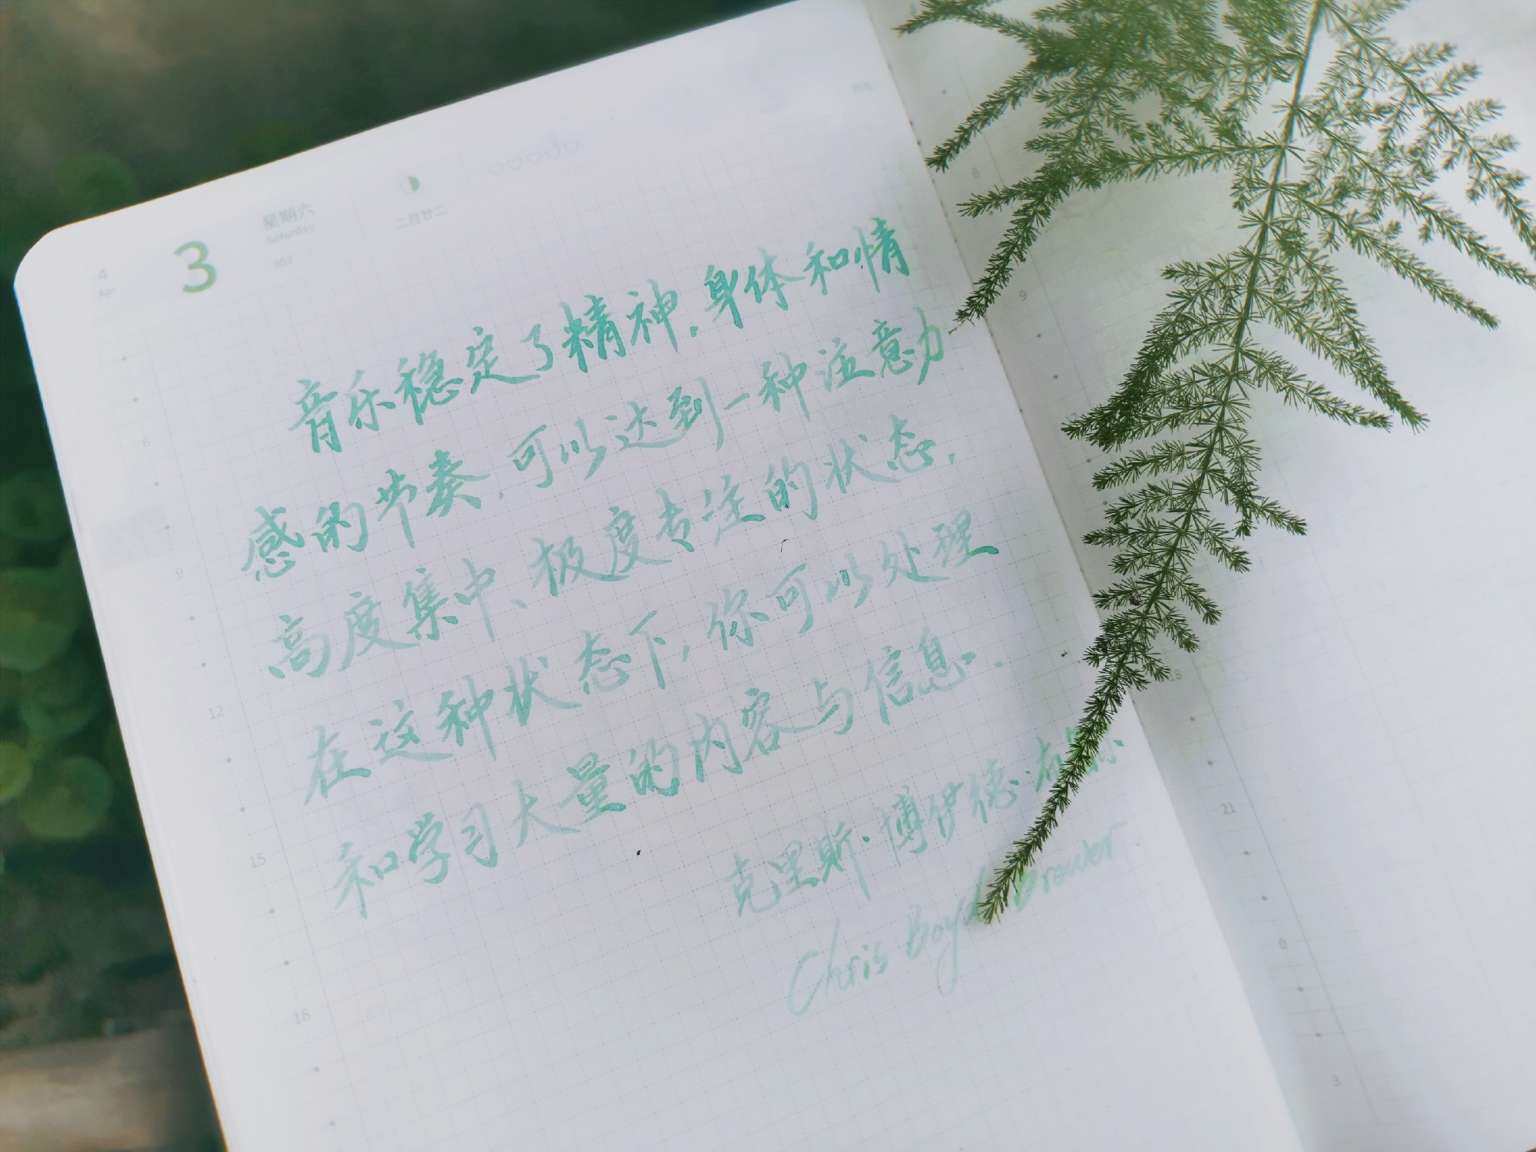 4
Apr
3
星期六
Saturday
二月廿二
音乐稳定了精神,身体和情
感的节奏,可以达到一种注意力
高度集中、极度专注的状态,
在这种状态下,你可以处理
和学习大量的内容与信息..
克里斯·博伊德·布
Chris Boyd Brewer
6
9
12
15
18
9
21
0
3